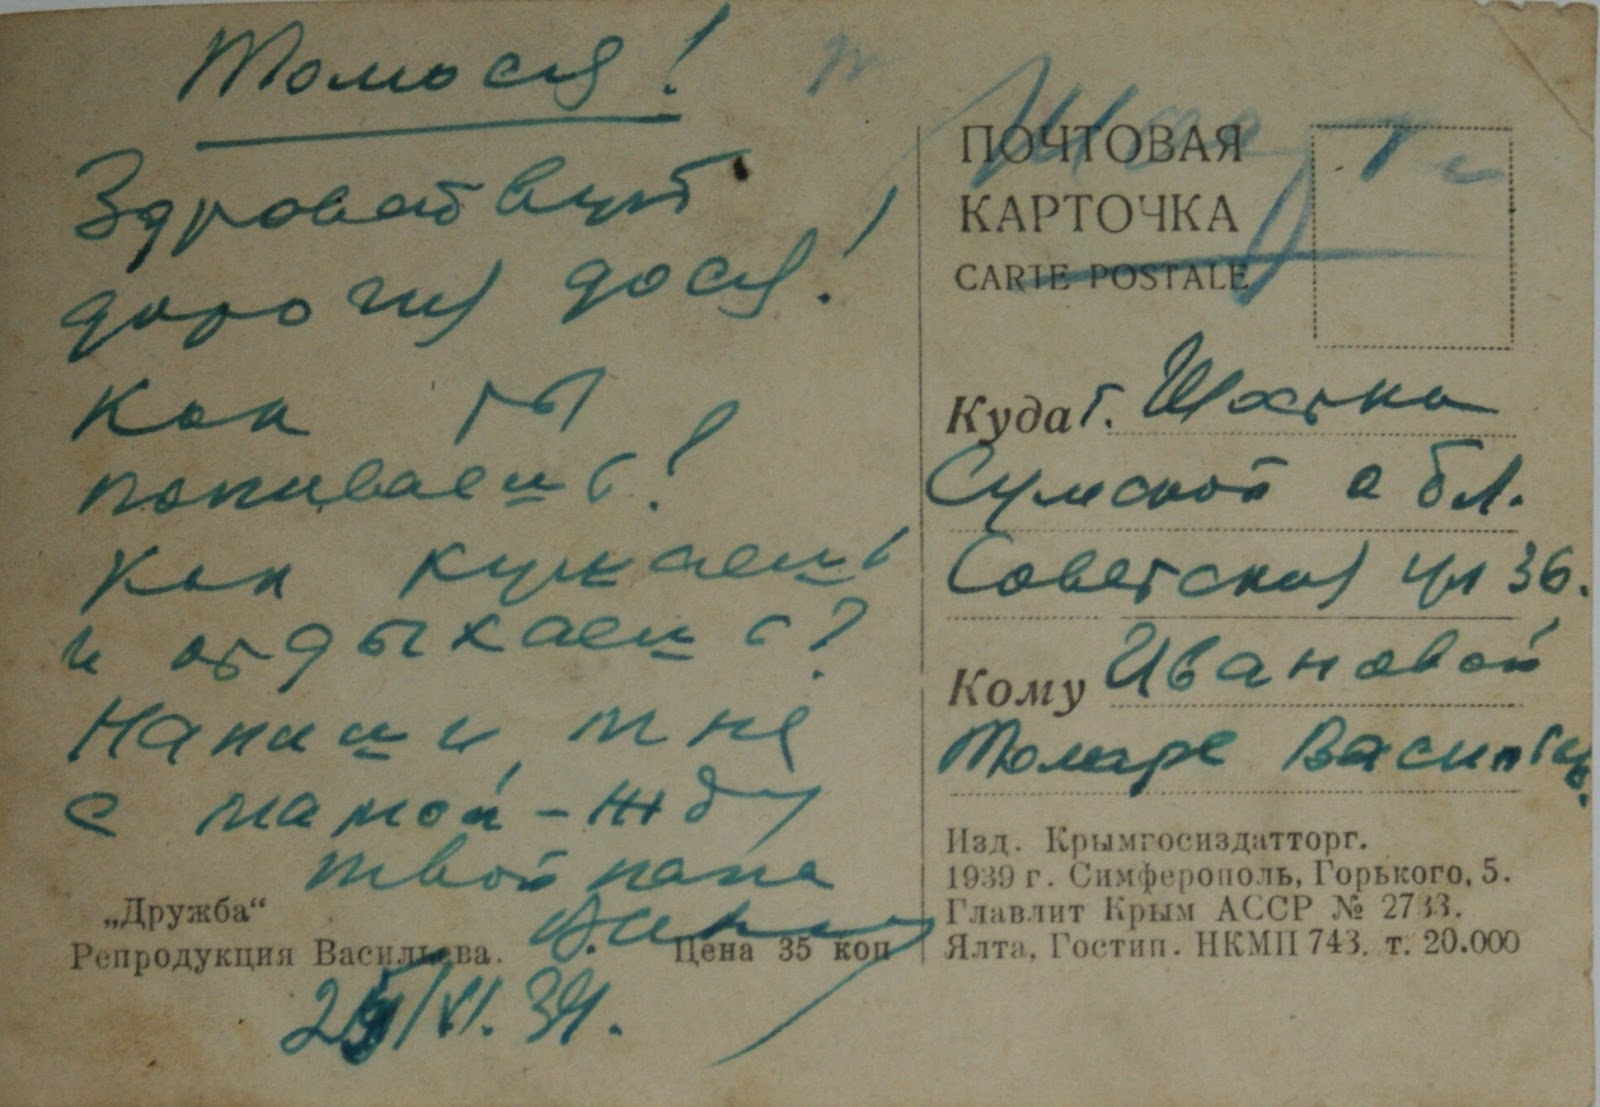 Томося!
Здравствуй
дорогая дося!
Как ты
поживаешь?
Как кушаешь
и отдыхаешь?
Напиши мне
с мамой – жду
твой папа
25/VI.39.
„Дружба“
Репродукция Васильева. Цена 35 коп
ПОЧТОВАЯ
КАРТОЧКА
CARTE POSTALE
Куда г. Шостка
Сумской обл.
Советская ул 36.
Кому Ивановой
Томаре
Изд. Крымгосиздатторг.
1939 г. Симферополь, Горького, 5.
Главлит Крым АССР № 2733.
Ялта, Гостип. НКМП 743. т. 20.000